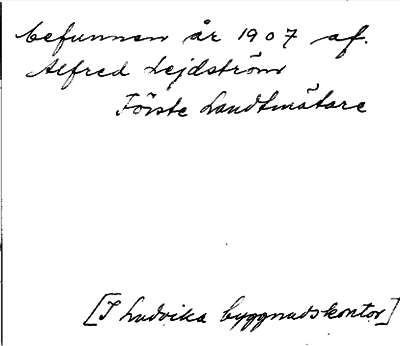 befunnen år 1907 af.
Alfred Lejdström
Förste Landtmätare
[I Ludvika byggnadskontor]